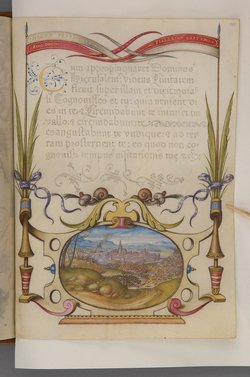 Cum appropinquaret Dominus
Hierusalem: Videns Civitatem
flevit super illam et dixit: quia
si Cognovisses et tu: quia venient di
es in te: et Circundabunt te inimici tui
vallo: et circundabunt te: et co
angustabunt te undique: et ad ter
ram prosternent te: eo quod non co
gnovisti tempus visitationis tue